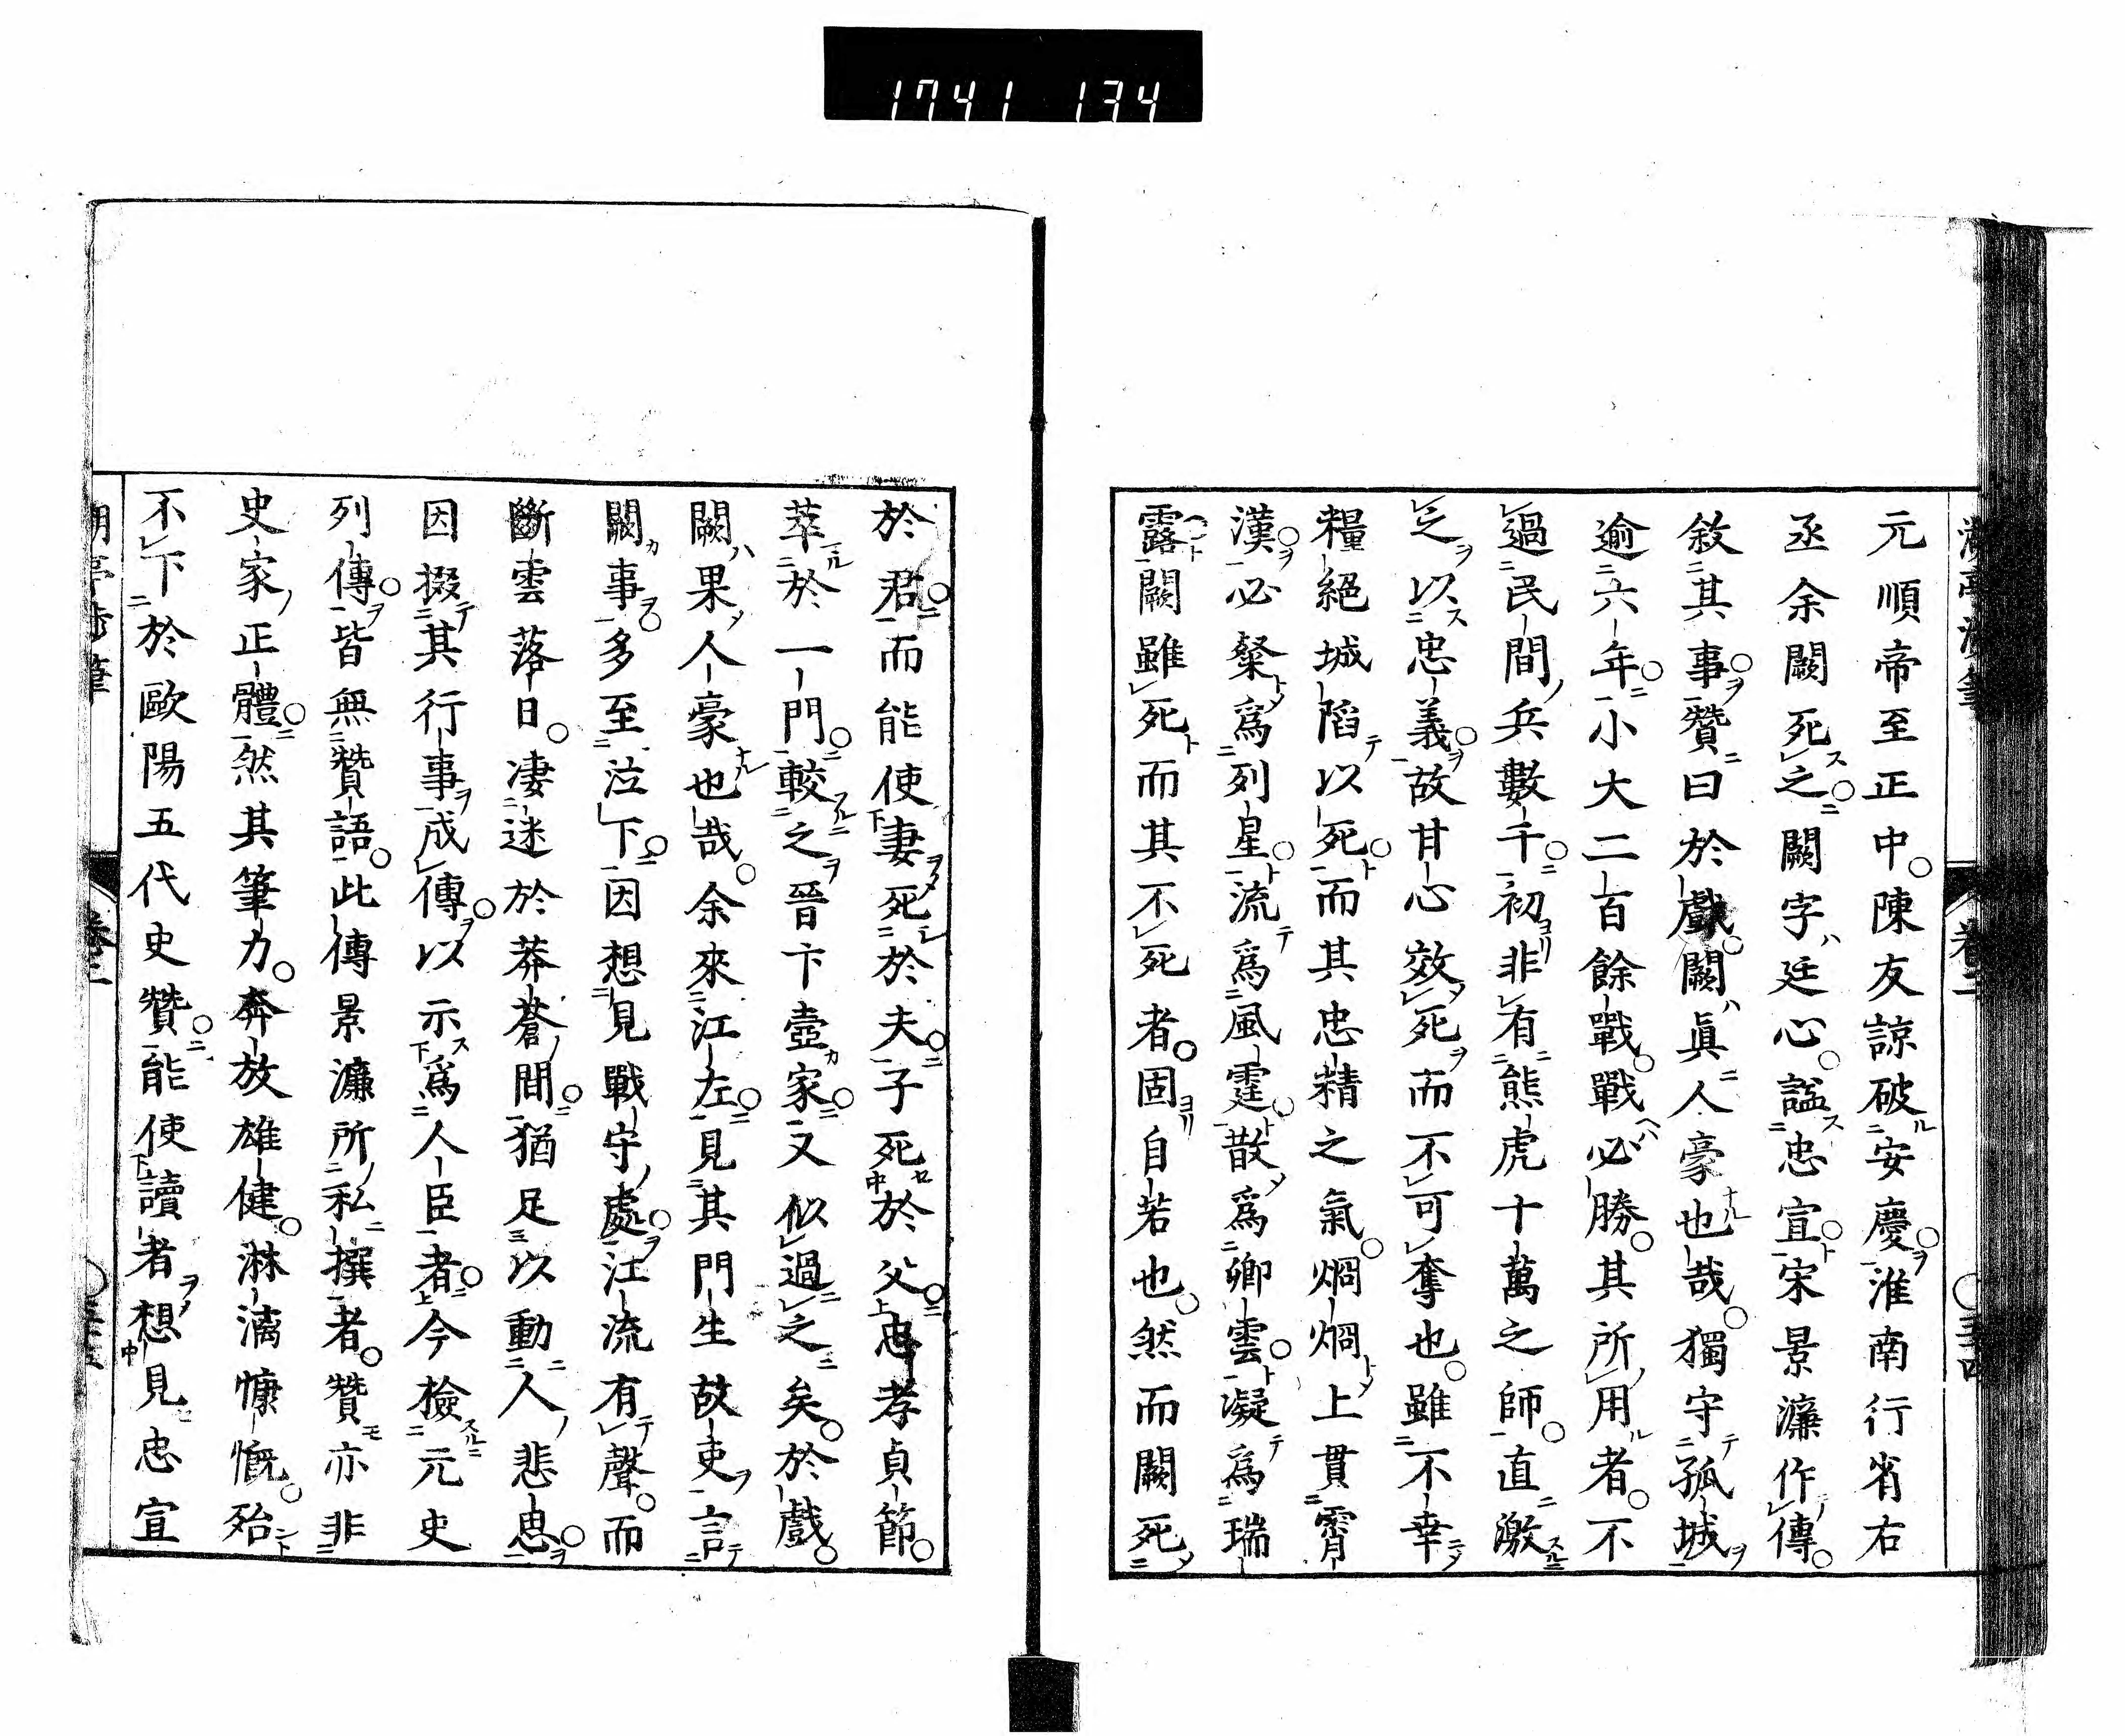 1741 134
元順帝至正中陳友諒破安慶淮南行省右
丞余闕死之闕字廷心謚忠宣宋景濂作傳
敘其事贊曰於戲闕眞人豪也哉獨守孤城
逾六年小大二百餘戰戰必勝其所用者不
過民間兵數千初非有熊虎十萬之師直激
之以忠義故甘心效死而不可奪也雖不幸
糧絕城陷以死而其忠精之氣烱烱上貫霄
漢必粲爲列星流爲風霆散爲卿雲凝爲瑞
露闕雖死而其不死者固自若也然而闕死
於君而能使妻死於夫子死於父忠孝貞節
萃於一門較之晉卞壼家又似過之矣於戲
闕果人豪也哉余來江左見其門生故吏言
闕事多至泣下因想見戰守處江流有聲而
斷雲落日凄迷於莽蒼間猶足以動人悲思
因掇其行事成傳以示爲人臣者今檢元史
列傳皆無贊語此傳景濂所私撰者贊亦非
史家正體然其筆力奔放雄健淋漓慷慨殆
不下於歐陽五代史贊能使讀者想見忠宣
卷二